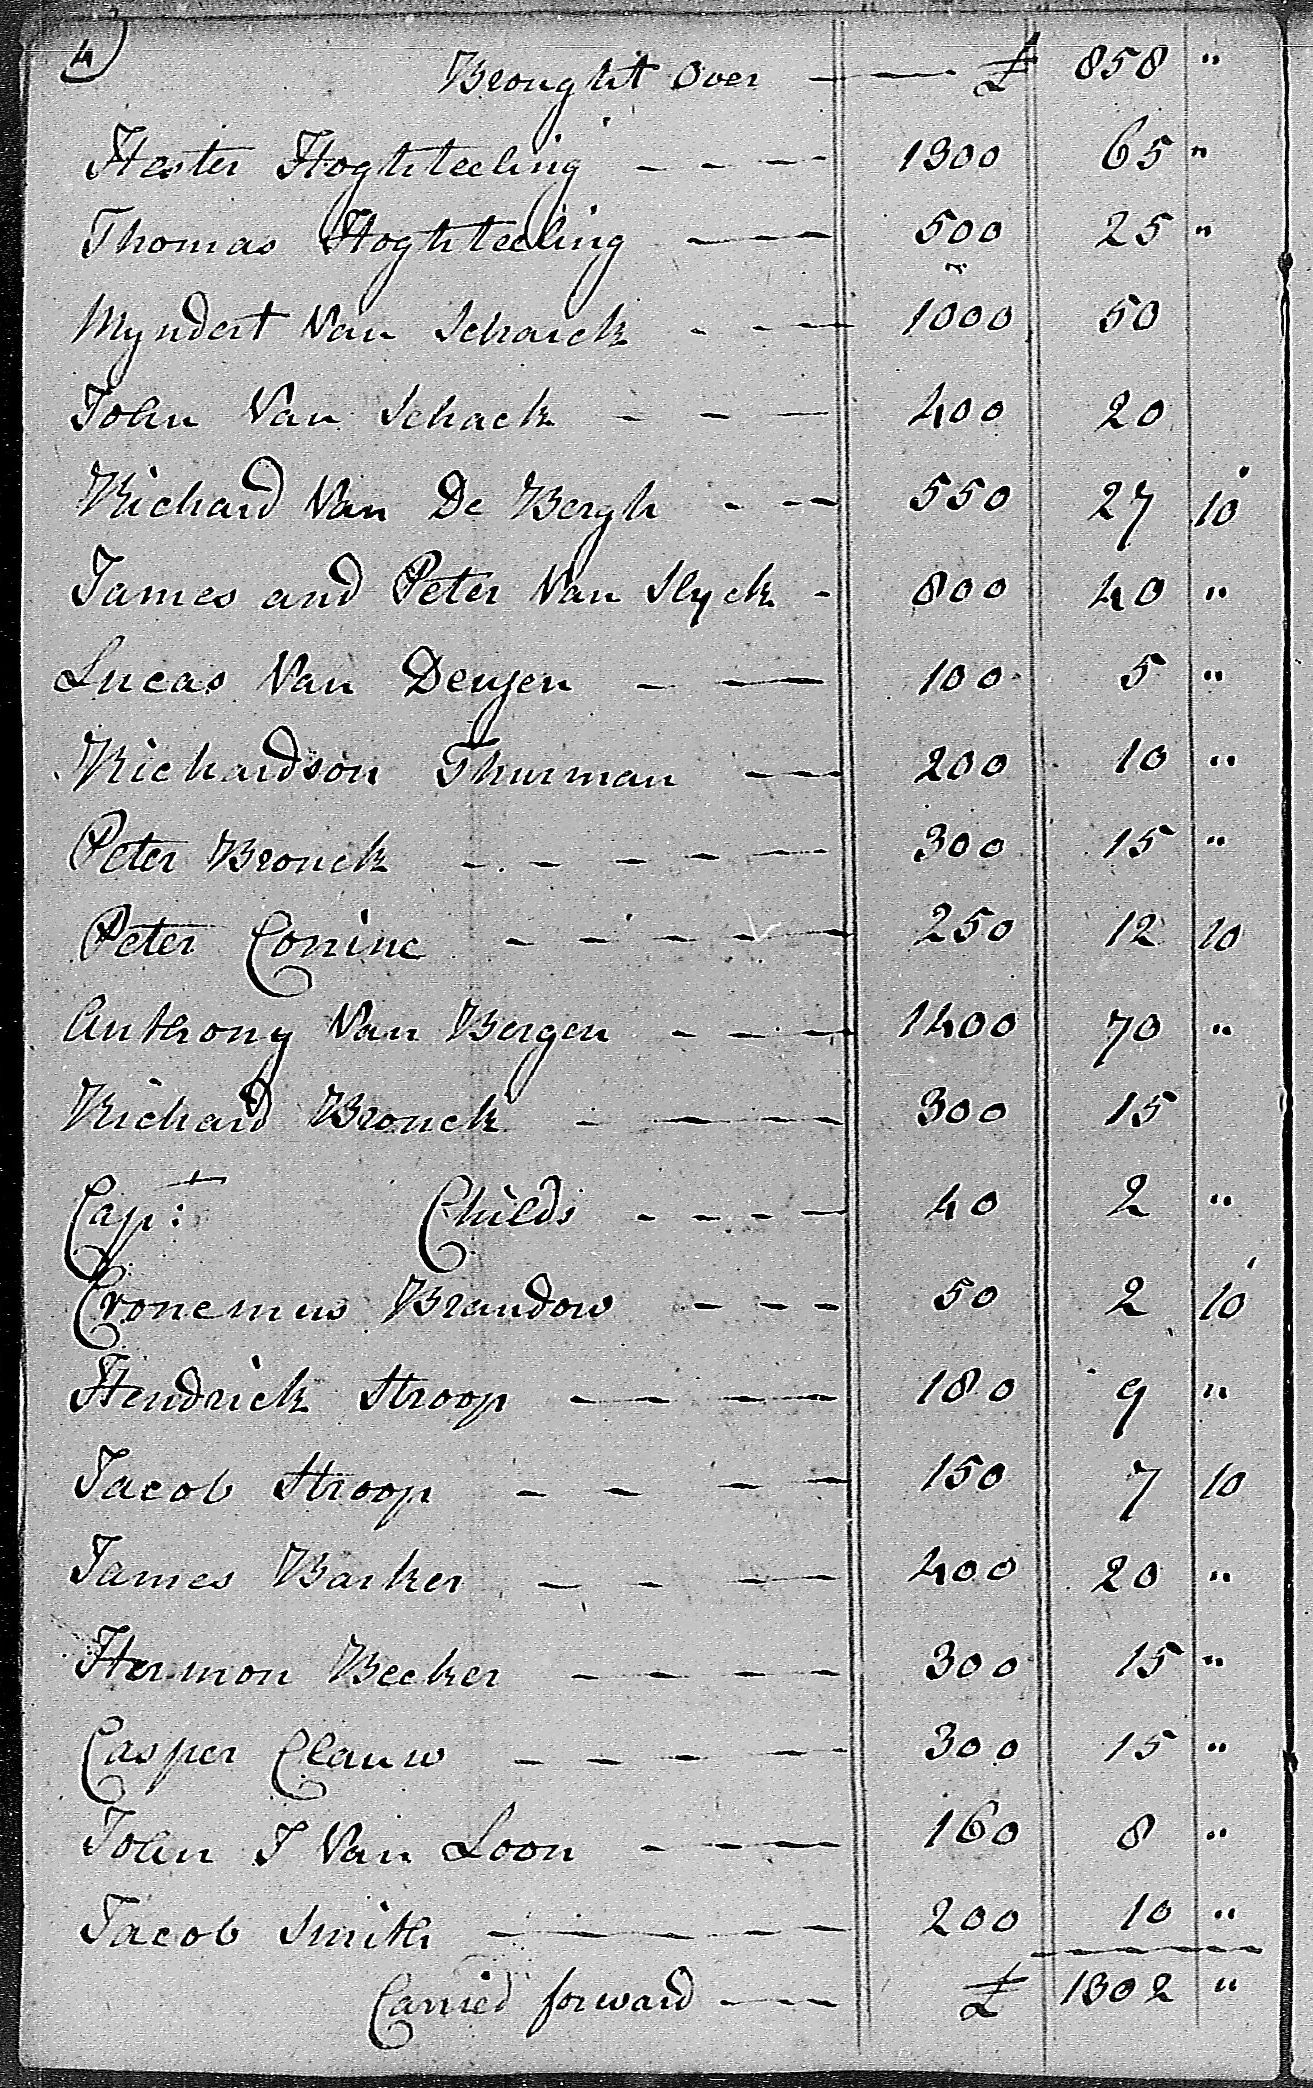 4
Brought over £ 858 "
Hester Hoghteeling 1300 65 "
Thomas Hoghteeling 500 25 "
Myndert Van Schaick 1000 50
John Van Schack 400 20
Richard Van De Bergh 550 27 10
James and Peter Van Slyck 800 40 "
Lucas Van Deusen 100 5 "
Richardson Thurman 200 10 "
Peter Bronck 300 15 "
Peter Conine 250 12 10
Anthony Van Bergen 1400 70 "
Richard Bronck 300 15
Capt: Childs 40 2 "
Cronemus Brandow 50 2 10
Hendrick Stroop 180 9 "
Jacob Stroop 150 7 10
James Barker 400 20 "
Hermon Becker 300 15 "
Casper Clauw 300 15 "
John J Van Loon 160 8 "
Jacob Smith 200 10 "
Carried forward £ 1302 "